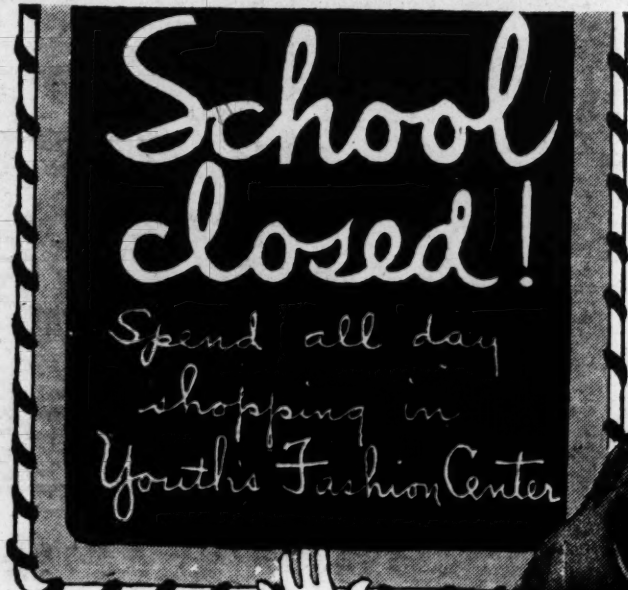 School
closed!
Spend all day
shopping in
Youth's Fashion Center